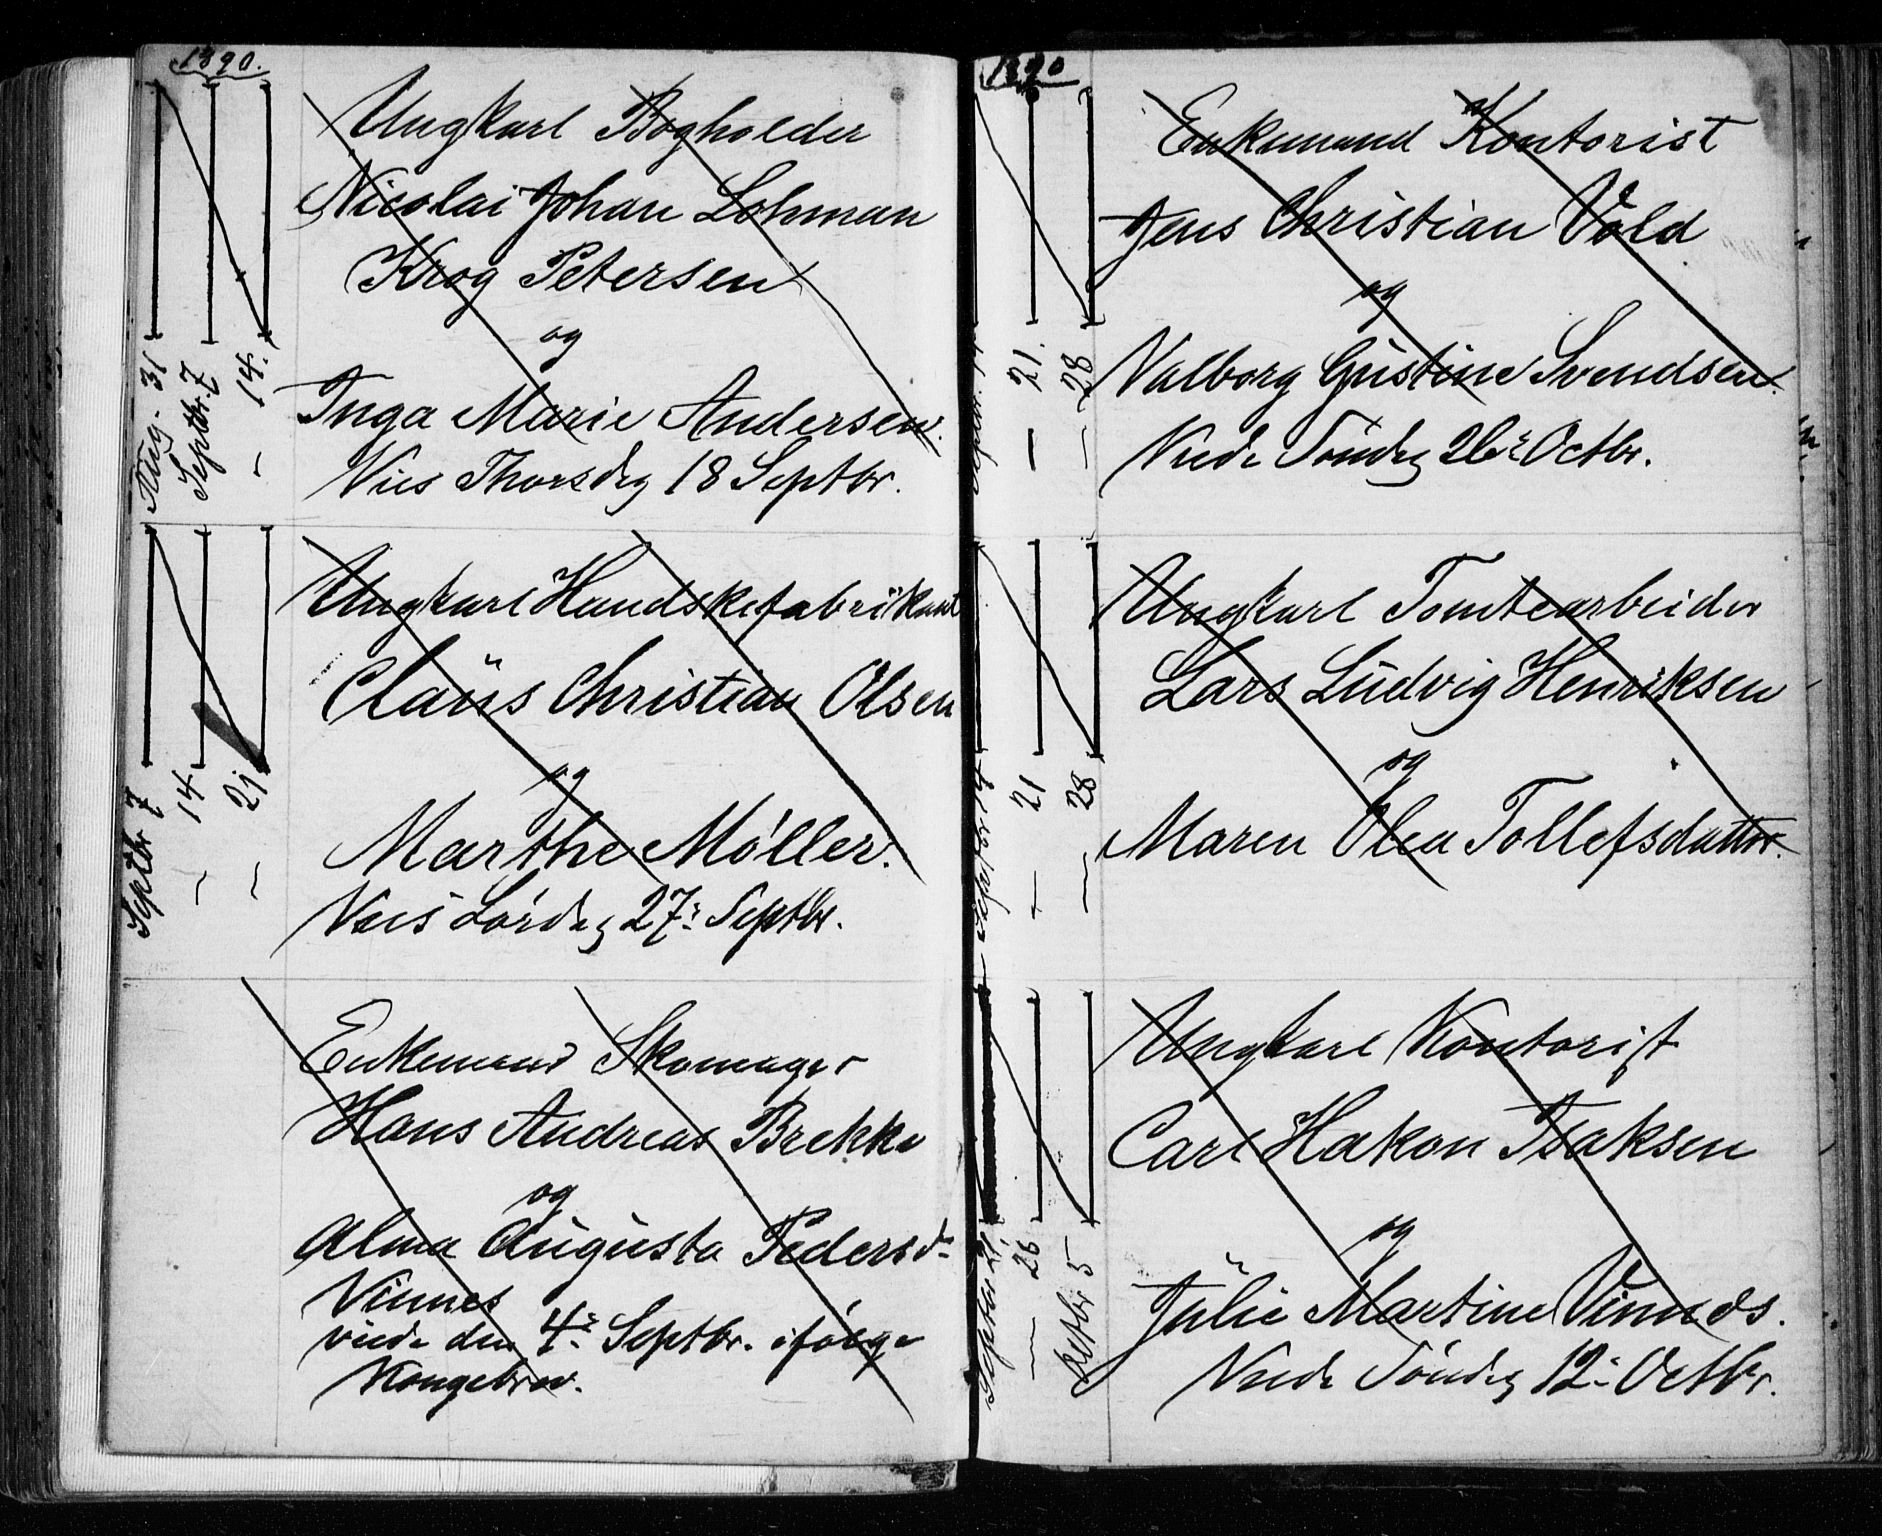 1890.
Ungkarl Bogholder
Nicolai Johan Lohman
Krog Petersen
og
Inga Marie Andersen.
Vies Thorsdg 18 Septbr.
Aug. 31
Septbr. 7
— 14.
Ungkarl Handskefabrikant
Claüs Christian Olsen
og
Marthe Möller.
Vies Lördag 27: Septbr.
Septbr 7
— 14
— 21
Enkemand Skomager
Hans Andreas Brekke
og
Alma Augusta Pedersd-
Vinnes
viede den 4: Septbr. ifölge
Kongebrev.
1890
Enkemand Kontorist
Jens Christian Vold
og
Valborg Gustine Svendsen.
Viede Söndag 26: Octbr.
Septbr. 14
— 21.
— 28
Ungkarl Tomtearbeider
Lars Ludvig Henriksen
og
Maren Olea Tollefsdatter.
Septbr 14
— 21
— 28
Ungkarl Kontorist
Carl Hakon Isaksen
og
Julie Martine Vinnes.
Viede Söndag 12: Octbr.
Septbr 21.
— 28
Octbr 5